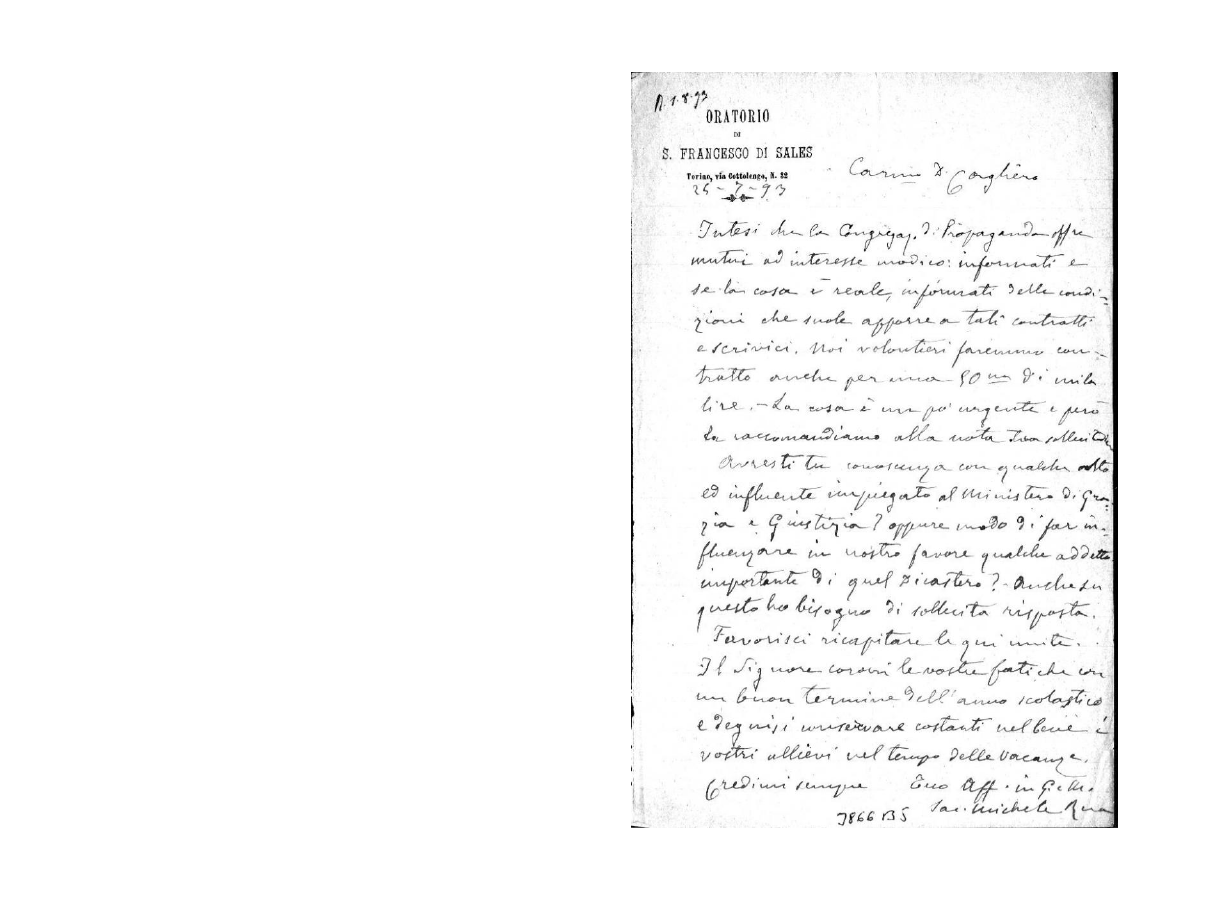 R. 1-8-93
ORATORIO
DI
S. FRANCESCO DI SALES
Torino, via Cottolengo, N. 32
25-7-93
Car.mo D. Cagliero
Intesi che la Congregaz. di Propaganda offre
mutui ad interesse modico: informati e
se la cosa è reale, informati delle condi-
zioni che suole apporre a tali contratti
e scrivici. Noi volontieri faremmo con-
tratto anche per una 50.na di mila
lire. - La cosa è un po' urgente e però
la raccomandiamo alla nota tua sollecitudine
Avresti tu conoscenza con qualche alto
ed influente impiegato al Ministero di Gra-
zia e Giustizia? oppure modo di far in-
fluenzare in nostro favore qualche addetto
importante di quel Dicastero? - Anche su
questo ho bisogno di sollecita risposta.
Favorisci ricapitare le qui unite.
Il Signore coroni le vostre fatiche con
un buon termine dell'anno scolastico
e degnisi conservare costanti nel bene i
vostri allievi nel tempo delle vacanze.
Credimi sempre Tuo Aff. in G. e M.
Sac. Michele Rua
3866 B5